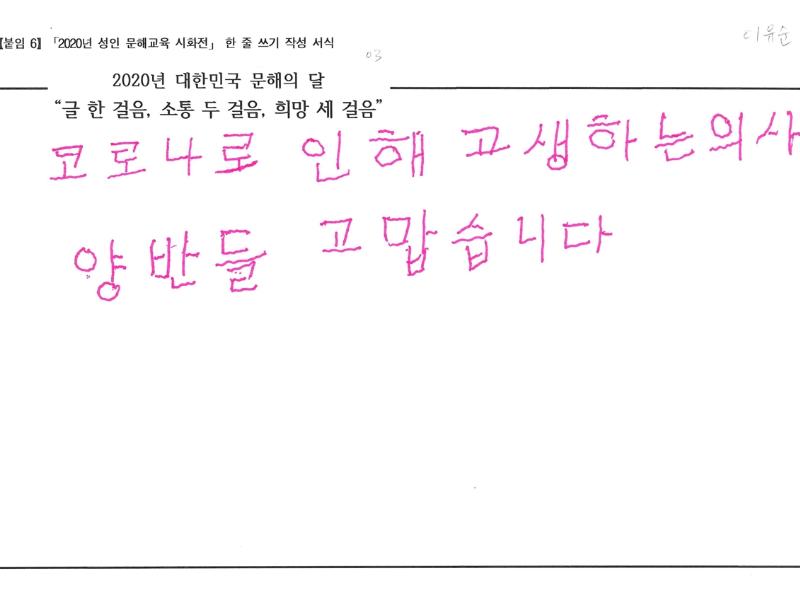 [붙임 6] 「2020년 성인 문해교육 시화전」 한 줄 쓰기 작성 서식
이유순
03
2020년 대한민국 문해의 달
“글 한 걸음, 소통 두 걸음, 희망 세 걸음”
코로나로 인해 고생하는의사
양반들 고맙습니다